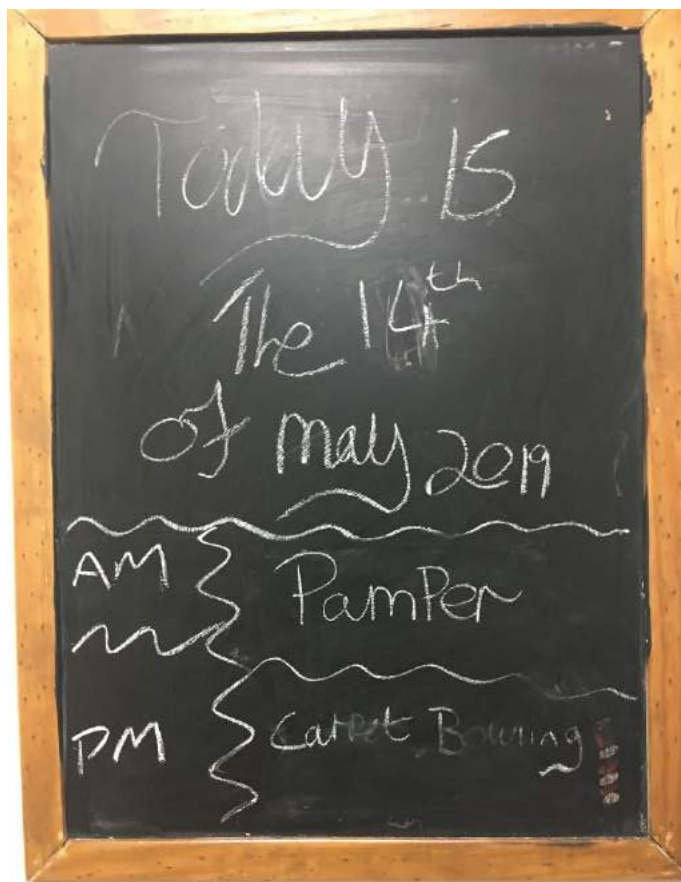 Today is
The 14th
of may 2019
AM Pamper
PM Carpet Bowling